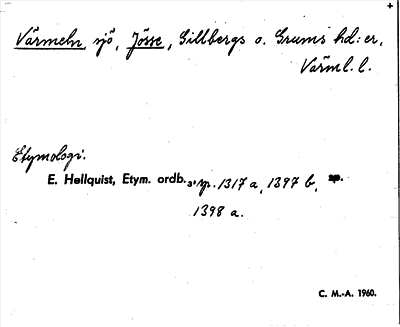 Värmeln, sjö, Jösse, Gillbergs o. Grums hd:er,
Värml. l.
Etymologi.
E. Hellquist, Etym. ordb.3, sp. 1317 a, 1397 b,
1398 a.
C. M.-A. 1960.